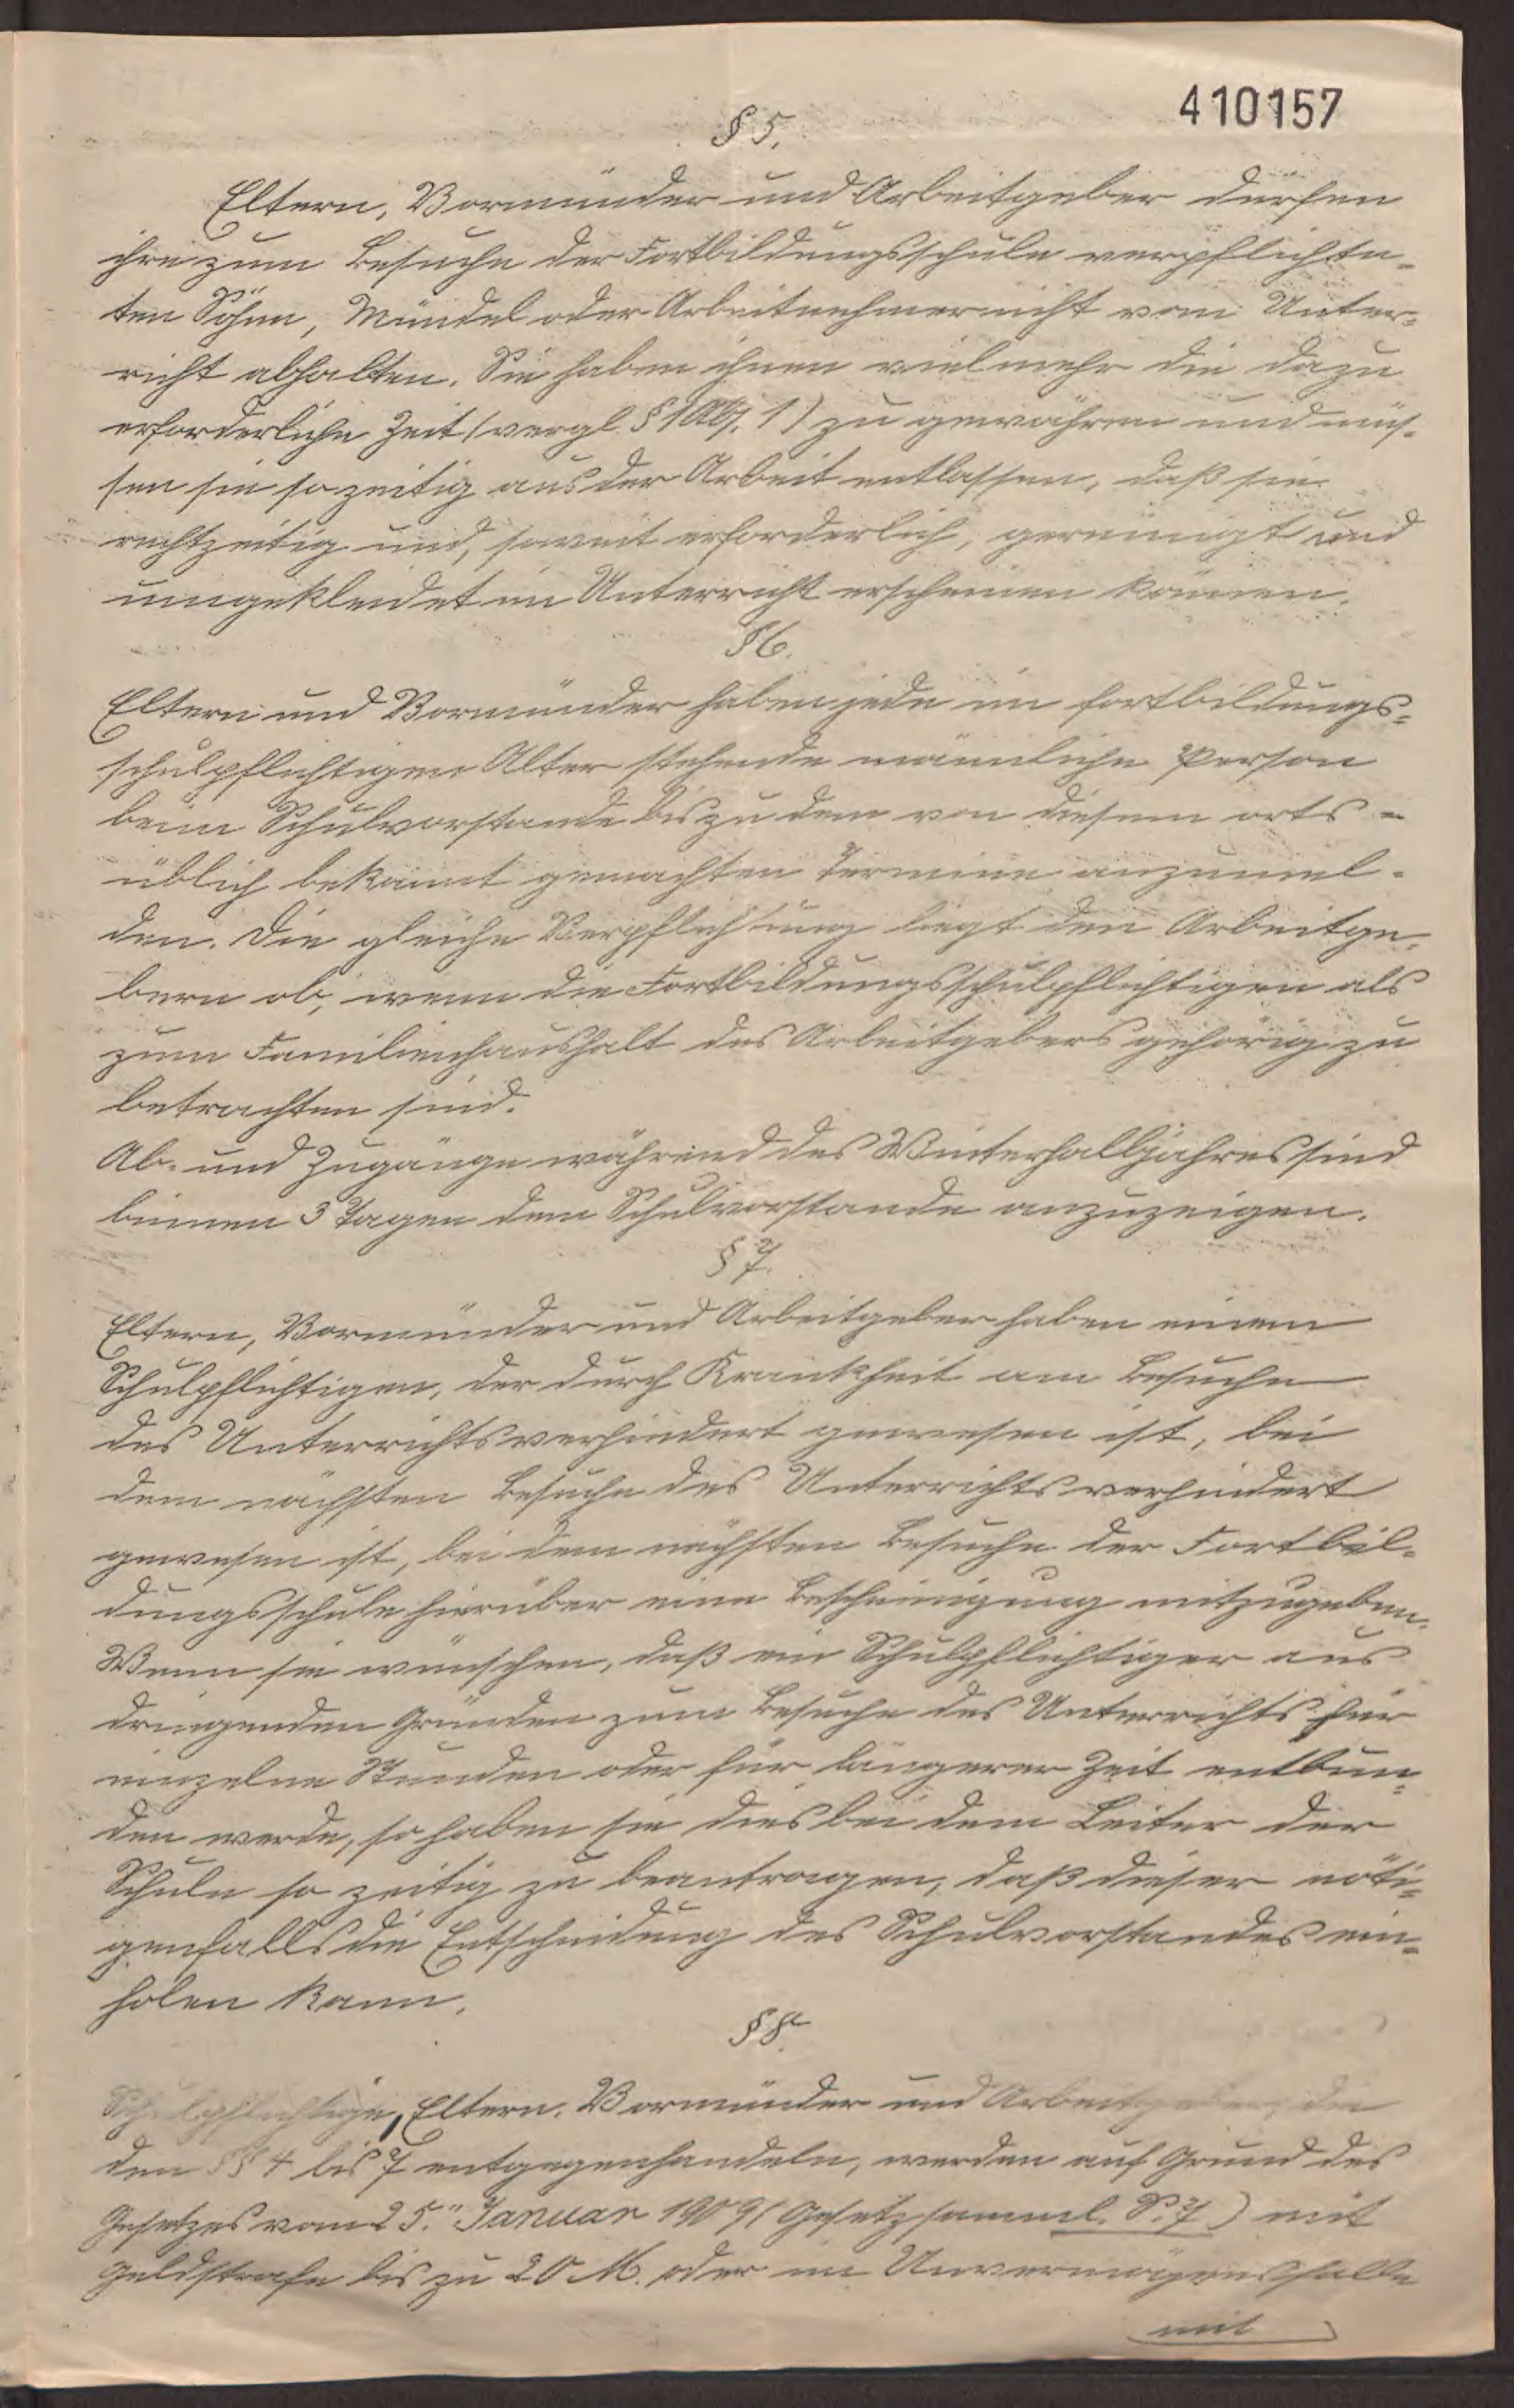 410157
§ 5.
Eltern, Vormünder und Arbeitgeber dürfen
ihre zum Besuche der Fortbildungsschule verpflichte-
ten Söhne, Mündel oder Arbeitnehmer nicht vom Unter-
richt abhalten. Sie haben ihnen vielmehr die dazu
erforderliche Zeit (vergl. § 1 Abs. 1) zu gewähren und müs-
sen sie so zeitig aus der Arbeit entlassen, daß sie
rechtzeitig und, soweit erforderlich, gereinigt und
umgekleidet im Unterricht erscheinen können.
§ 6.
Eltern und Vormünder haben jede im fortbildungs-
schulpflichtigen Alter stehende männliche Person
beim Schulvorstande bis zu dem von diesem orts-
üblich bekannt gemachten Termine anzumel-
den. Die gleiche Verpflichtung liegt den Arbeitge-
bern ob, wenn die Fortbildungsschulpflichtigen als
zum Familienhaushalt des Arbeitgebers gehörig zu
betrachten sind.
Ab- und Zugänge während des Winterhalbjahres sind
binnen 3 Tagen dem Schulvorstande anzuzeigen.
§ 7.
Eltern, Vormünder und Arbeitgeber haben einem
Schulpflichtigen, der durch Krankheit am Besuche
des Unterrichts verhindert gewesen ist, bei
dem nächsten Besuche des Unterrichts verhindert
gewesen ist, bei dem nächsten Besuche der Fortbil-
dungsschule hierüber eine Bescheinigung mitzugeben.
Wenn sie wünschen, daß ein Schulpflichtiger aus
dringenden Gründen zum Besuche des Unterrichts für
einzelne Stunden oder für längerer Zeit entbun-
den werde, so haben sie dies bei dem Leiter der
Schule so zeitig zu beantragen, daß dieser nöti-
genfalls die Entscheidung des Schulvorstandes ein-
holen kann.
§ 8.
Schulpflichtige, Eltern, Vormünder und Arbeitgeber, die
den §§ 4 bis 7 entgegenhandeln, werden auf Grund des
Gesetzes vom 25. Januar 1909 (Gesetzsamml. S. 7) mit
Geldstrafe bis zu 20 M. oder im Unvermögensfalle
mit